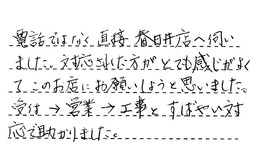 電話ではなく直接春日井店へ伺い
ました。対応された方がとても感じがよく
て このお店にお願いしようと思いました。
受付→営業→工事とすばやい対
応で助かりました。